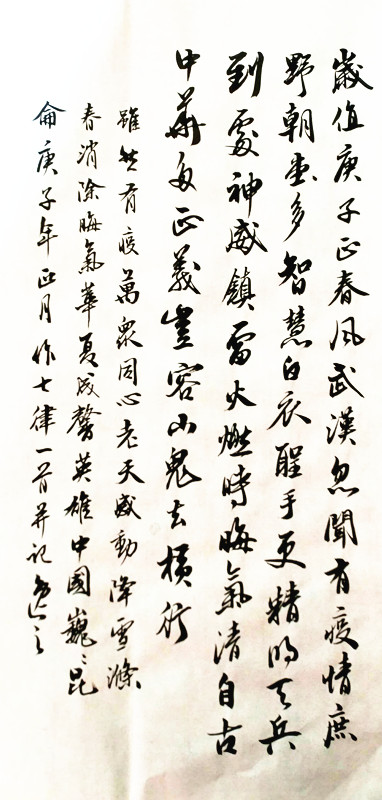 歲值庚子正春風武漢忽聞有疫情庶
野朝堂多智慧白衣聖手更精明天兵
到處神威鎮雷火燃時晦氣清自古
中華多正義豈容山鬼去橫行
雖然有疫萬眾同心老天感動降雪滌
春消除晦氣華夏成馨英雄中國巍〻昆
侖庚子年正月作七律一首并記